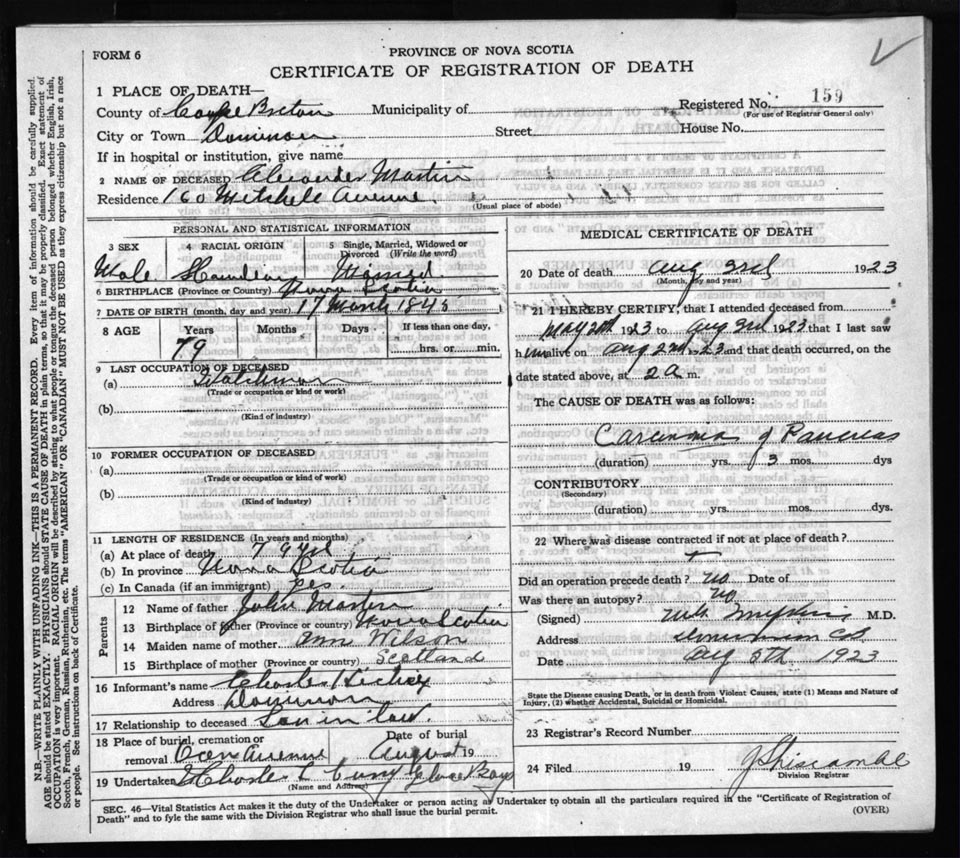 FORM 6
PROVINCE OF NOVA SCOTIA
CERTIFICATE OF REGISTRATION OF DEATH
1 PLACE OF DEATH—
County of Cape Breton Municipality of
Registered No. 159
(For use of Registrar General only)
City or Town Dominion Street House No.
If in hospital or institution, give name
2 NAME OF DECEASED Alexander Martin
Residence 160 Mitchell Avenue
(Usual place of abode)
PERSONAL AND STATISTICAL INFORMATION
3 SEX 4 RACIAL ORIGIN 5 Single, Married, Widowed or Divorced (Write the word)
Male Married
6 BIRTHPLACE (Province or Country) Nova Scotia
7 DATE OF BIRTH (month, day and year) 17 March 1845
8 AGE Years Months Days If less than one day,
79 hrs. or min.
9 LAST OCCUPATION OF DECEASED
(a) Watchman
(Trade or occupation or kind or work)
(b)
(Kind of industry)
10 FORMER OCCUPATION OF DECEASED
(a)
(Trade or occupation or kind of work)
(b)
(Kind of industry)
11 LENGTH OF RESIDENCE (In years and months)
(a) At place of death 79 yrs
(b) In province Nova Scotia
(c) In Canada (if an immigrant) yes.
Parents
12 Name of father John Martin
13 Birthplace of father (Province or country) Nova Scotia
14 Maiden name of mother Ann Wilson
15 Birthplace of mother (Province or country) Scotland
16 Informant's name Charles
Address Dominion
17 Relationship to deceased Son in law.
18 Place of burial, cremation or Date of burial
removal Avenue August 19
19 Undertaker Charles L Curry Glace Bay
(Name and Address)
MEDICAL CERTIFICATE OF DEATH
20 Date of death Aug 3rd 1923
(Month, day and year)
21 I HEREBY CERTIFY, that I attended deceased from
May 1923 to Aug 3rd 1923 that I last saw
him alive on Aug 2nd 1923 and that death occurred, on the
date stated above, at 2 a m.
The CAUSE OF DEATH was as follows:
Carcinoma of Pancreas
(duration) yrs. 3 mos. dys
CONTRIBUTORY
(Secondary)
(duration) yrs. mos. dys.
22 Where was disease contracted if not at place of death?
Did an operation precede death? no Date of
Was there an autopsy? no
(Signed) M.D.
Address Dominion CB
Date Aug 5th 1923
State the Disease causing Death, or in death from Violent Causes, state (1) Means and Nature of
Injury, (2) whether Accidental, Suicidal or Homicidal.
23 Registrar's Record Number
24 Filed 19
Division Registrar
SEC. 46—Vital Statistics Act makes it the duty of the Undertaker or person acting as Undertaker to obtain all the particulars required in the "Certificate of Registration of
Death" and to fyle the same with the Division Registrar who shall issue the burial permit. (OVER)
N.B.—WRITE PLAINLY WITH UNFADING INK—THIS IS A PERMANENT RECORD. Every item of information should be carefully supplied.
AGE should be stated EXACTLY. PHYSICIANS should STATE CAUSE OF DEATH in plain terms, so that it may be properly classified. Exact statement of
OCCUPATION is very important. RACIAL ORIGIN will be described by stating to what people or tongue the deceased person belonged whether English, Irish,
Scotch, French, German, Russian, Ruthenian, etc. The terms "AMERICAN" OR "CANADIAN" MUST NOT BE USED as they express citizenship but not a race
or people. See instructions on back of Certificate.